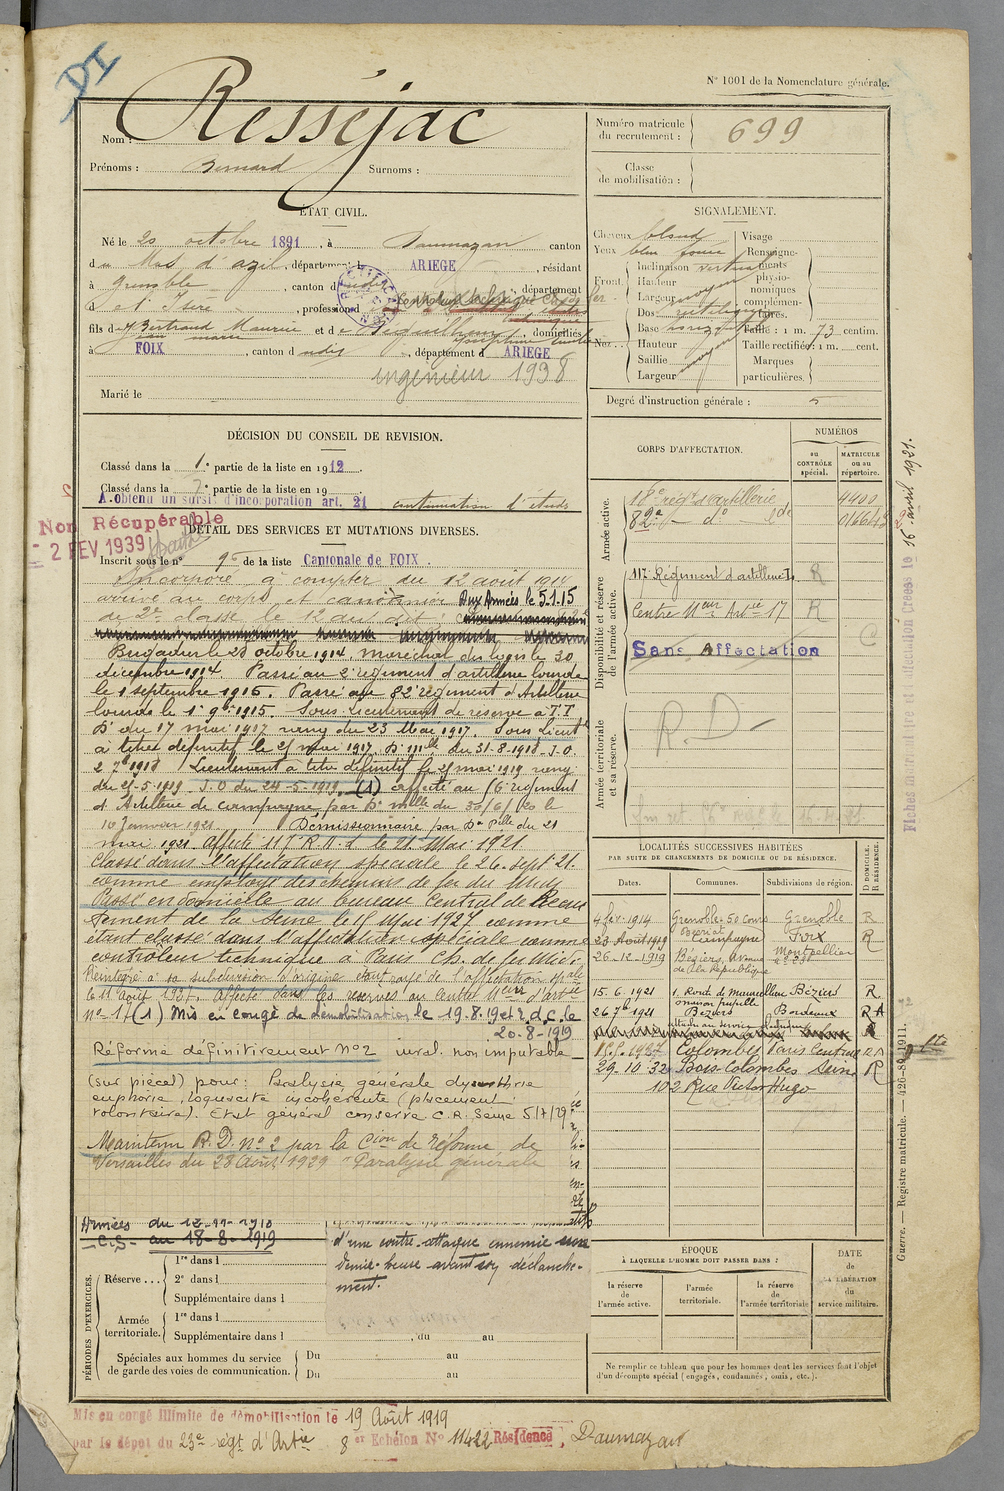 DI
N° 1001 de la Nomenclature générale.
Nom : Resséjac
Prénoms : Bernard Surnoms :
Numéro matricule du recrutement : 699
Classe de mobilisation :
ÉTAT CIVIL.
Né le 20 octobre 1891, à Daumazan canton
du Mas d'azil, département d ARIEGE, résidant
à Grenoble, canton d udis, département
d e l'Isère, profession d
fils de Bertrand Maurice et de domiciliés
à FOIX, canton d udis, département d ARIEGE
ingénieur 1938
Marié le
SIGNALEMENT.
Cheveux blond
Yeux bleu foncé
Front : Inclinaison verticale
Hauteur
Largeur moyen
Nez : Dos rectiligne
Base
Hauteur
Saillie moyen
Largeur
Visage
Renseignements physionomiques complémentaires.
Taille : 1 m. 73 centim.
Taille rectifiée : 1 m. cent.
Marques particulières.
Degré d'instruction générale : 5
DÉCISION DU CONSEIL DE REVISION.
Classé dans la 1e partie de la liste en 1912.
Classé dans la 7e partie de la liste en 19
A obtenu un sursis d'incorporation art. 21 continuation d'études
Non Récupérable
- 2 FEV 1939
DÉTAIL DES SERVICES ET MUTATIONS DIVERSES.
Inscrit sous le n° 96 de la liste Cantonale de FOIX.
Incorporé à compter du 12 août 1914
arrivé au corps et canonnier Aux Armées le 5.1.15
de 2e classe le 12 au dit.
Brigadier le 23 octobre 1914. Maréchal des logis le 30
décembre 1914 Passé au 2e régiment d'artillerie lourde
le 1 septembre 1915. Passé au 82e régiment d'Artillerie
lourde le 1r 9bre 1915. Sous-Lieutenant de réserve à T.T.
Dn du 17 mai 1917 rang du 23 Mai 1917. Sous Lieutt
à titre définitif le 25 mai 1917. Dn mlle du 31-8-1918. J.O.
2 7bre 1918 Lieutenant à titre définitif le 25 mai 1919 rang
du 25-5-1919 J.O du 24-5-1919. (1) affecté au 16e régiment
d'Artillerie de campagne par Dn mlle du 30/6/20 le
10 Janvier 1921 Démissionnaire par Dn Plle du 21
mai 1921 affecté 117e R.A.L le 21 Mai 1921
Classé dans l'affectation spéciale le 26 Sept 21
comme employé des chemins de fer du Midi
Passé en domicile au bureau Central de Recrutement
de la Seine le 15 Mai 1927 comme
étant classé dans l'affectation spéciale comme
contrôleur technique à Paris Ch. de fer Midi.
Réintégré à sa subdivision d'origine étant rayé de l'affectation spale
le 11 août 1937. Affecté dans les réserves au Centre Meur d'artie
n° 17 (1) Mis en congé de démobilisation le 19.8.19 et R.d.C. le
20-8-1919
Réformé définitivement N°2 inval. non imputable
(sur pièces) pour : Paralysie générale dysarthrie
euphorie, loquacité incohérente (placement
volontaire). Etat général conservé C.R. Seine 5/7/29
Maintenu R.D. n° 2 par la Cion de Réforme de
Versailles du 28 Août 1929 "Paralysie générale
Armées du 12-11-1918
C.S. au 18-8-1919
d'une contre-attaque ennemie
demie-heure avant son déclanchement.
CORPS D'AFFECTATION.
NUMÉROS
au CONTRÔLE spécial.
MATRICULE ou au répertoire.
Armée active.
18e régt d'artillerie 4400
82e - d° lde
Disponibilité et réserve de l'armée active.
117 Régiment d'artillerie R
Centre Meur Artie 17 R
Sans Affectation
C
Armée territoriale et sa réserve.
R D -
LOCALITÉS SUCCESSIVES HABITÉES
PAR SUITE DE CHANGEMENTS DE DOMICILE OU DE RÉSIDENCE.
Dates. Communes. Subdivisions de région. D DOMICILE. R RÉSIDENCE.
4 fév. 1914 Grenoble 50 cours Berriat Grenoble R
23 Août 1919 Campagne Foix R
26-12-1919 Béziers, avenue de la République Montpellier
15.6.1921 1, Route de Maureilhan Béziers R
26 7bre 1921 Béziers Bordeaux R A
15.5.1927 Colombes Paris Central
29-10-32 Bois-Colombes Seine R
102 Rue Victor Hugo
PÉRIODES D'EXERCICES.
Réserve ... 1re dans l
2e dans l
Supplémentaire dans l
Armée territoriale. 1re dans l
Supplémentaire dans l , du au
Spéciales aux hommes du service de garde des voies de communication.
Du au
Du au
ÉPOQUE
À LAQUELLE L'HOMME DOIT PASSER DANS :
la réserve de l'armée active.
l'armée territoriale.
la réserve de l'armée territoriale
DATE de LA LIBÉRATION du service militaire.
Ne remplir ce tableau que pour les hommes dont les services font l'objet
d'un décompte spécial (engagés, condamnés, omis, etc.).
Fiches matriculaire et d'affectation créées le 16 avril 1931.
Guerre. — Registre matricule. — 426-89-1911.
Mis en congé illimité de démobilisation le 19 Août 1919
par le dépôt du 23e régt d'Artie 8 er Echelon N° 11422 Résidence, Daumazan